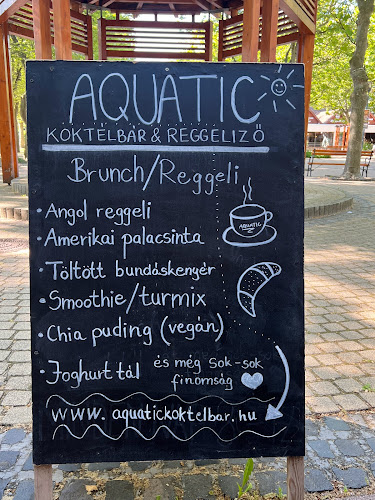 AQUATIC
KOKTÉLBÁR & REGGELIZŐ
Brunch/Reggeli
• Angol reggeli
• Amerikai palacsinta
• Töltött bundáskenyér
• Smoothie/turmix
• Chia puding (vegán)
• Joghurt tál
és még sok-sok
finomság
AQUATIC
www.aquatickoktelbar.hu